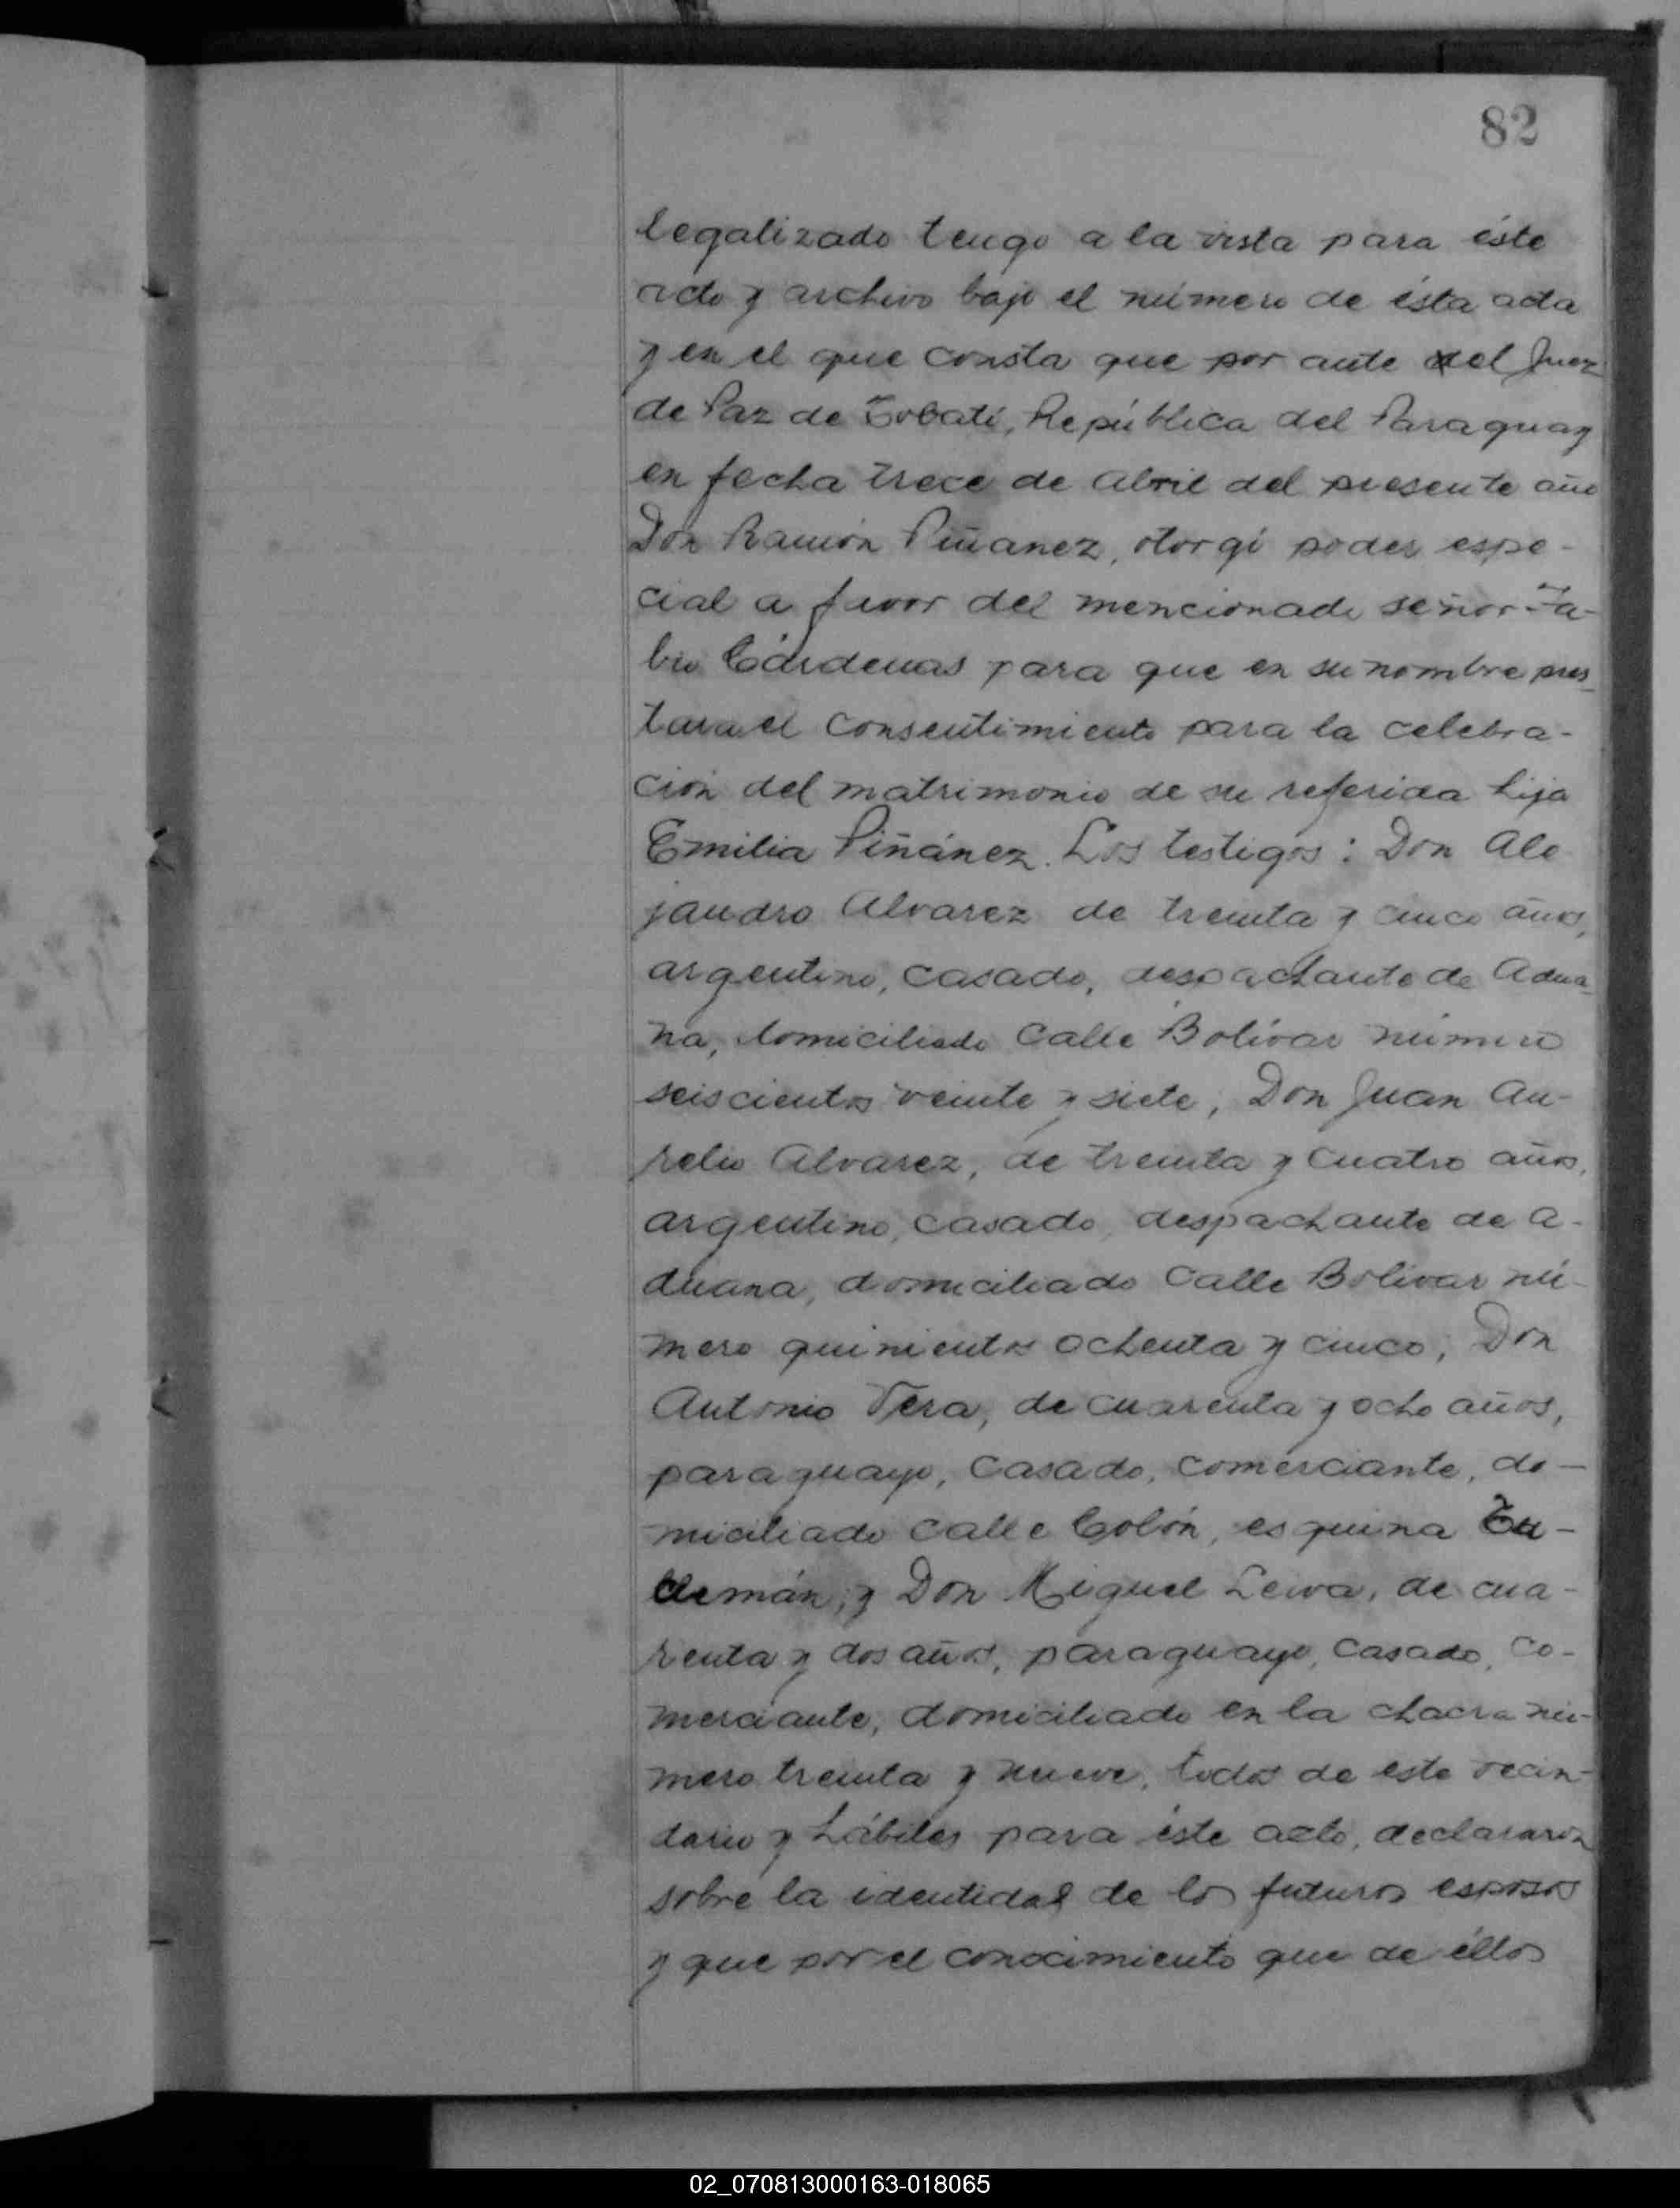 82
legalizado tengo a la vista para éste
acto y archivo bajo el número de ésta acta
y en el que consta que por ante el Juez
de Paz de Tobatí, República del Paraguay
en fecha trece de Abril del presente año
Don Ramón Piñanez, otorgó poder espe-
cial a favor del mencionado señor Fa-
bio Cárdenas para que en su nombre pres-
tara el consentimiento para la celebra-
ción del matrimonio de su referida hija
Emilia Piñánez. Los testigos: Don Ale
jandro Alvarez de treinta y cinco años,
argentino, casado, despachante de Adua-
na, domiciliado Calle Bolívar número
seiscientos veinte y siete, Don Juan Au-
relio Alvarez, de treinta y cuatro años,
argentino, casado, despachante de a-
duana, domiciliado Calle Bolivar nú-
mero quinientos ochenta y cinco, Don
Antonio Vera, de cuarenta y ocho años,
paraguayo, casado, comerciante, do-
miciliado calle Colón, esquina Tu-
cumán, y Don Miguel Leiva, de cua-
renta y dos años, paraguayo, casado, co-
merciante, domiciliado en la chacra nú-
mero treinta y nueve, todos de este vecin-
dario y hábiles para éste acto, declararon
sobre la identidad de los futuros esposos
y que por el conocimiento que de éllos
02_070813000163-018065